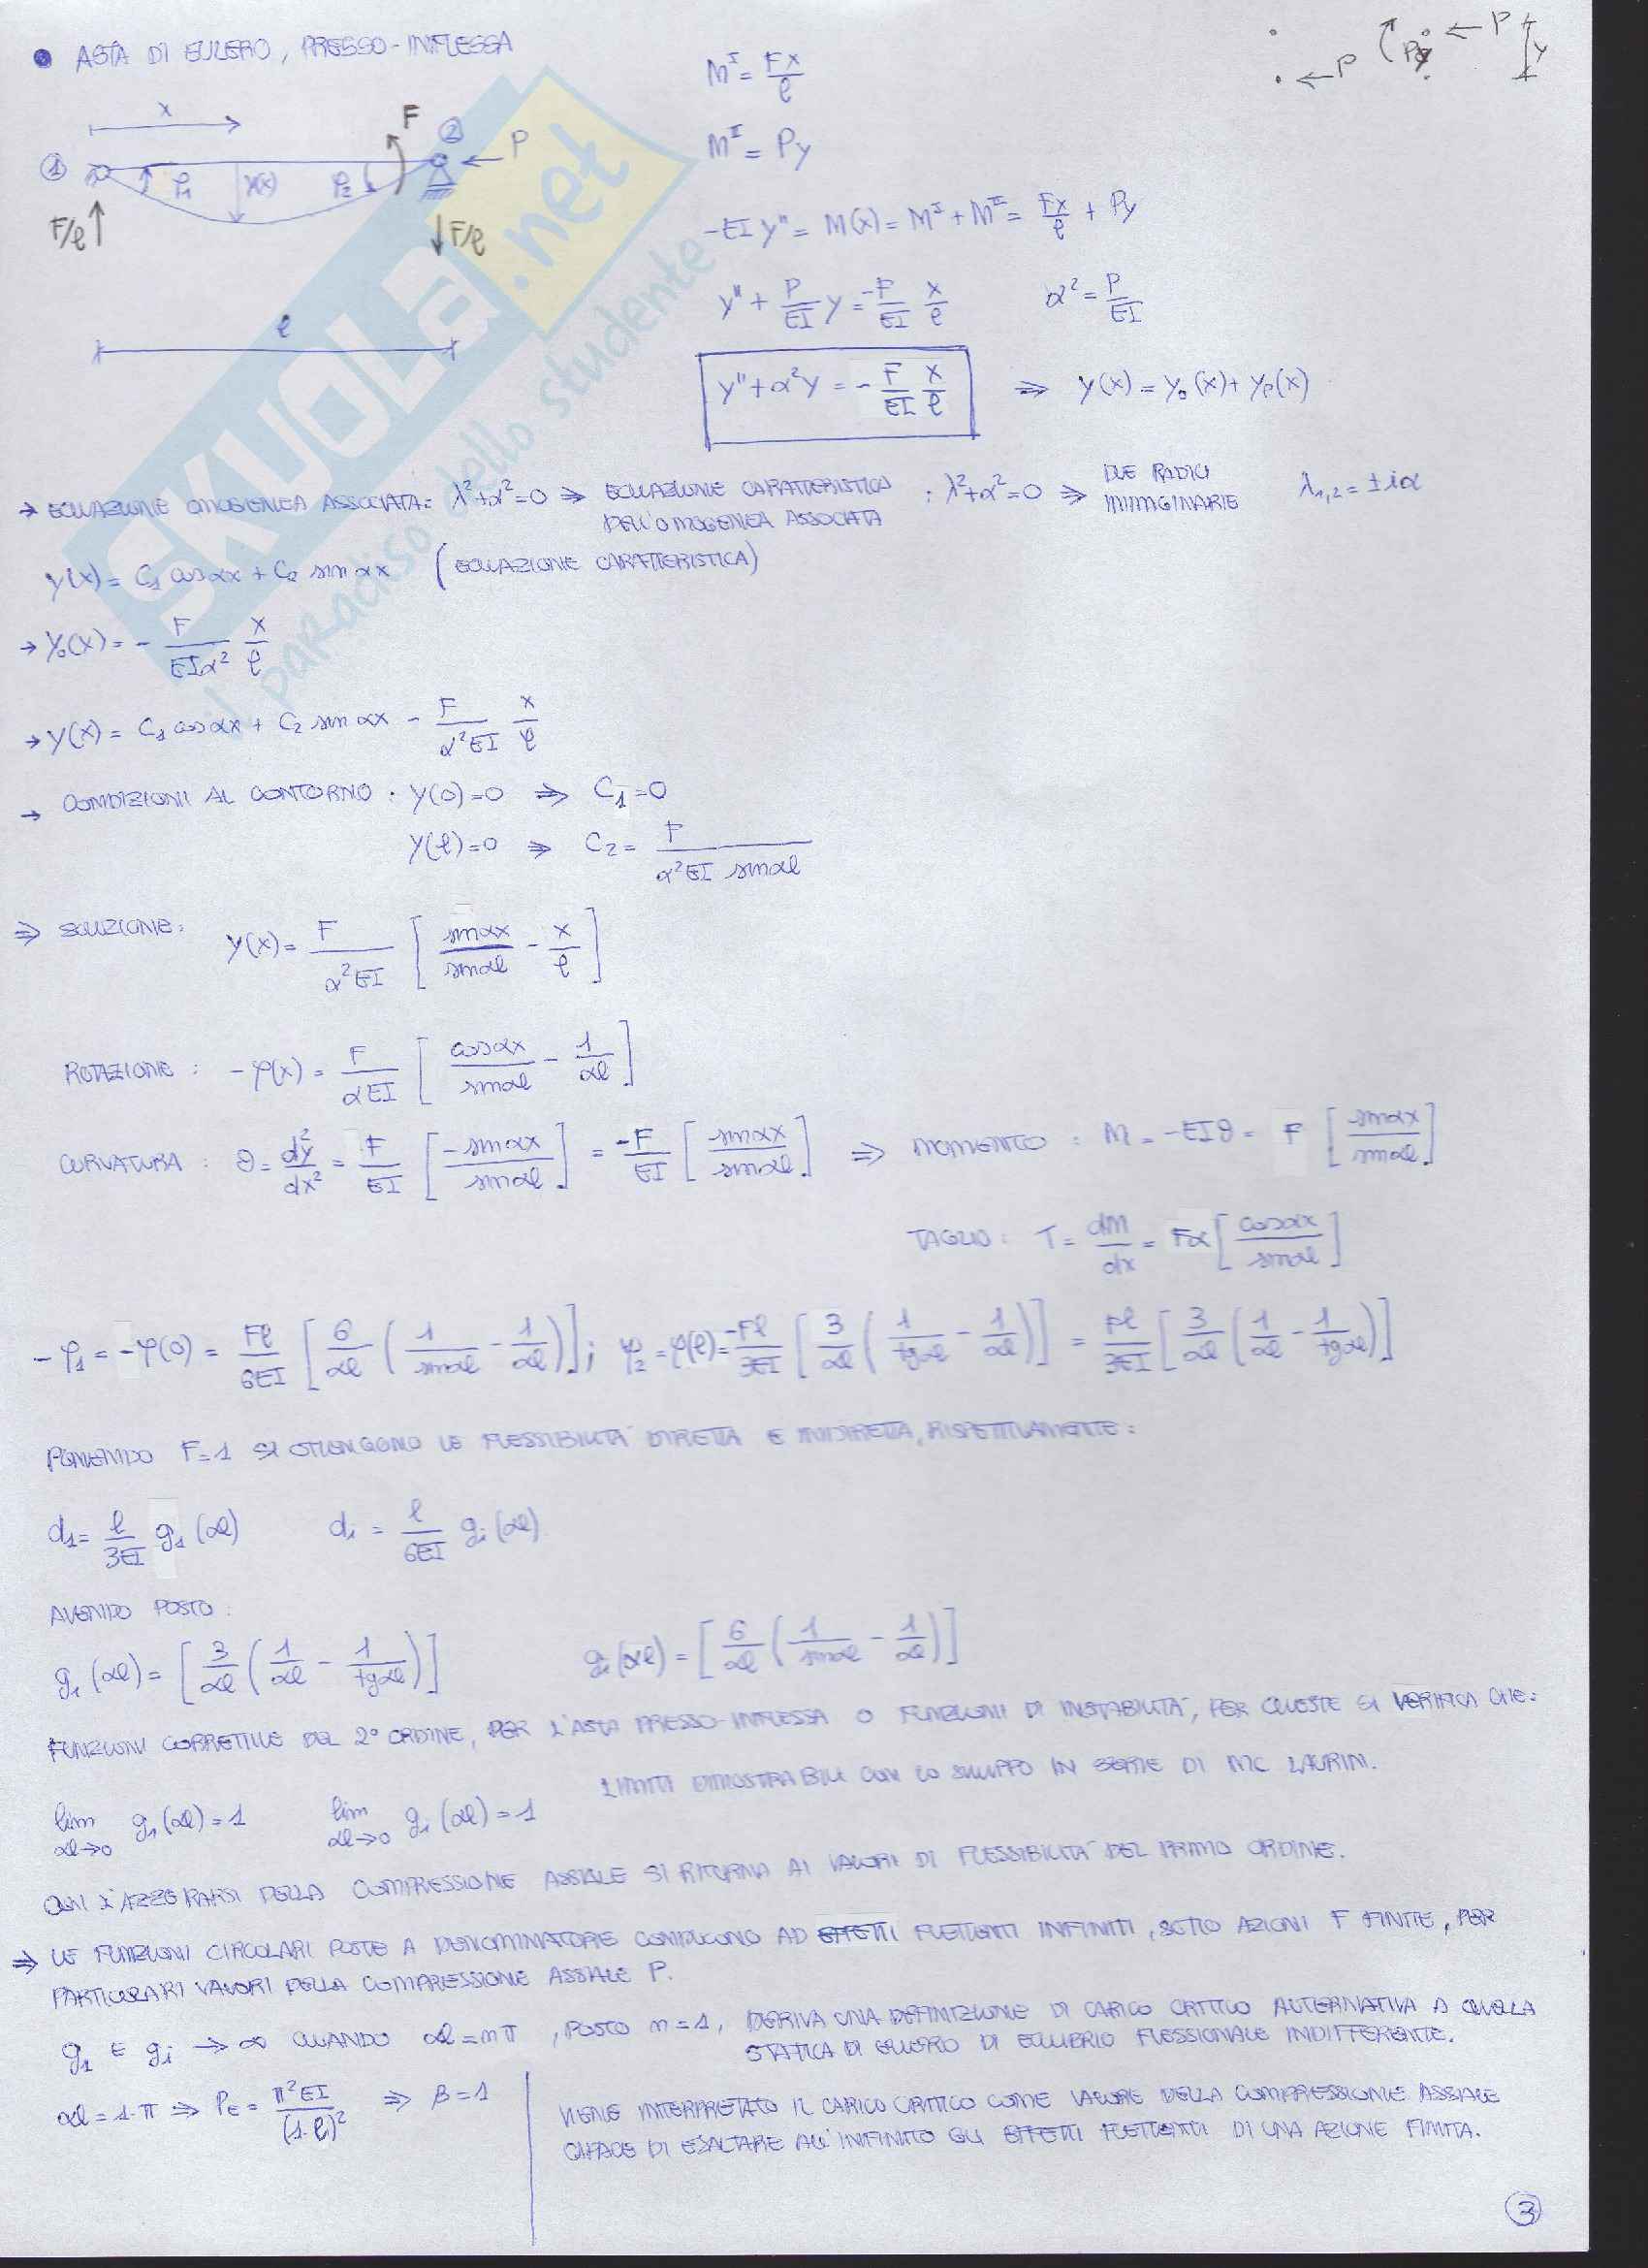 • ASTA DI EULERO, PRESSO-INFLESSA
x
① φ₁ y(x) φ₂ F ② ← P
F/ℓ ↑ ↓ F/ℓ
ℓ
← P Py ← P y
Mᴵ = Fx/ℓ
Mᴵᴵ = Py
-EI y'' = M(x) = Mᴵ + Mᴵᴵ = Fx/ℓ + Py
y'' + P/EI y = -F/EI x/ℓ α² = P/EI
y'' + α²y = - F/EI x/ℓ ⇒ y(x) = y₀(x) + yₚ(x)
→ EQUAZIONE OMOGENEA ASSOCIATA: λ²+α²=0 ⇒ EQUAZIONE CARATTERISTICA DELL'OMOGENEA ASSOCIATA : λ²+α²=0 ⇒ DUE RADICI IMMAGINARIE λ₁,₂ = ±iα
y(x) = C₁ cosαx + C₂ sinαx (EQUAZIONE CARATTERISTICA)
→ y₀(x) = - F/EIα² x/ℓ
→ y(x) = C₁ cosαx + C₂ sinαx - F/α²EI x/ℓ
→ CONDIZIONI AL CONTORNO : y(0)=0 ⇒ C₁=0
y(ℓ)=0 ⇒ C₂ = F/(α²EI sinαℓ)
⇒ SOLUZIONE: y(x) = F/α²EI [sinαx/sinαℓ - x/ℓ]
ROTAZIONE : -φ(x) = F/αEI [cosαx/sinαℓ - 1/αℓ]
CURVATURA : θ = d²y/dx² = F/EI [-sinαx/sinαℓ] = -F/EI [sinαx/sinαℓ] ⇒ MOMENTO : M = -EIθ = F [sinαx/sinαℓ]
TAGLIO : T = dM/dx = Fα [cosαx/sinαℓ]
-φ₁ = -φ(0) = Fℓ/6EI [6/αℓ (1/sinαℓ - 1/αℓ)] ; φ₂ = φ(ℓ) = -Fℓ/3EI [3/αℓ (1/tgαℓ - 1/αℓ)] = Fℓ/3EI [3/αℓ (1/αℓ - 1/tgαℓ)]
PONENDO F=1 SI OTTENGONO LE FLESSIBILITÀ DIRETTA E INDIRETTA, RISPETTIVAMENTE :
d₁ = ℓ/3EI g₁(αℓ) dᵢ = ℓ/6EI gᵢ(αℓ)
AVENDO POSTO :
g₁(αℓ) = [3/αℓ (1/αℓ - 1/tgαℓ)] gᵢ(αℓ) = [6/αℓ (1/sinαℓ - 1/αℓ)]
FUNZIONI CORRETTIVE DEL 2° ORDINE, PER L'ASTA PRESSO-INFLESSA O FUNZIONI DI INSTABILITÀ, PER QUESTE SI VERIFICA CHE:
LIMITI DIMOSTRABILI CON LO SVILUPPO IN SERIE DI MC LAURIN.
lim αℓ→0 g₁(αℓ) = 1 lim αℓ→0 gᵢ(αℓ) = 1
CON L'AZZERARSI DELLA COMPRESSIONE ASSIALE SI RITORNA AI VALORI DI FLESSIBILITÀ DEL PRIMO ORDINE.
⇒ LE FUNZIONI CIRCOLARI POSTE A DENOMINATORE CONDUCONO AD EFFETTI FLETTENTI INFINITI, SOTTO AZIONI F FINITE, PER
PARTICOLARI VALORI DELLA COMPRESSIONE ASSIALE P.
g₁ E gᵢ → ∞ QUANDO αℓ = nπ , POSTO n=1, DERIVA UNA DEFINIZIONE DI CARICO CRITICO ALTERNATIVA A QUELLA
STATICA DI EULERO DI EQUILIBRIO FLESSIONALE INDIFFERENTE.
αℓ = 1·π ⇒ P_E = π²EI/(1·ℓ)² ⇒ β=1
VIENE INTERPRETATO IL CARICO CRITICO COME VALORE DELLA COMPRESSIONE ASSIALE
CAPACE DI ESALTARE ALL'INFINITO GLI EFFETTI FLETTENTI DI UNA AZIONE FINITA.
③
SKUOLA.net
il paradiso dello studente